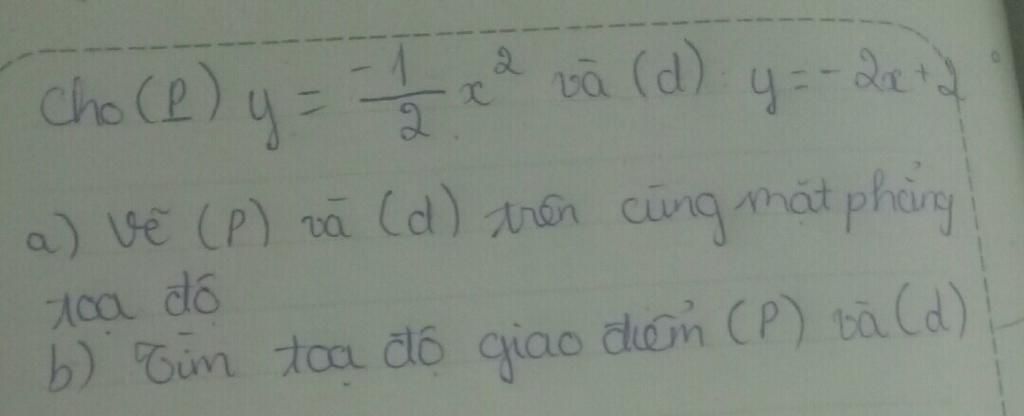 Cho (P) y = -1/2 x² và (d) : y = - 2x + 2
a) Vẽ (P) và (d) trên cùng mặt phẳng
toạ độ
b) Tìm toạ độ giao điểm (P) và (d)